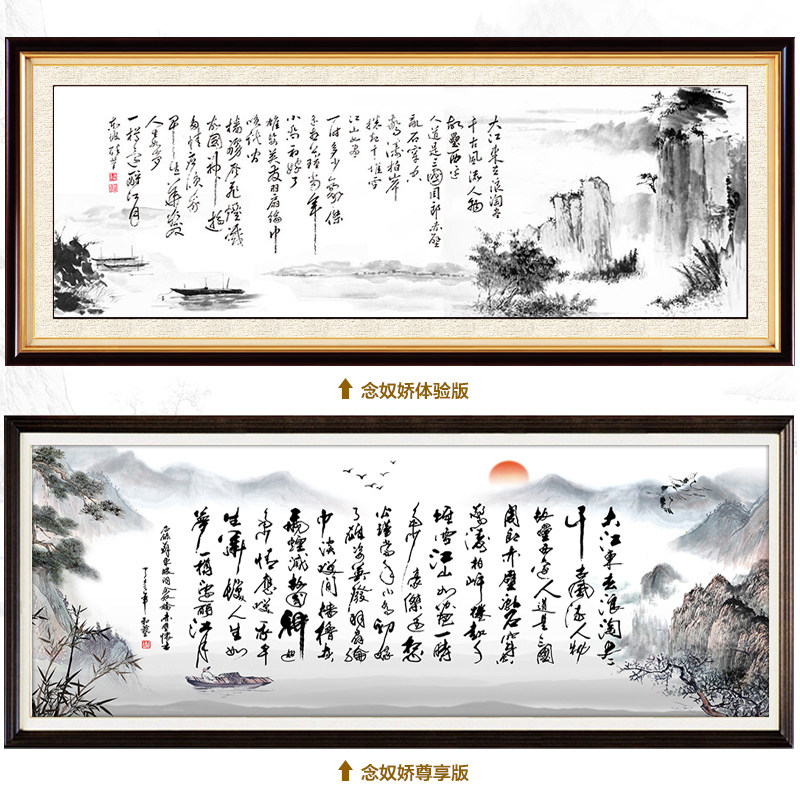 大江東去浪淘尽
千古風流人物
故壘西边
人道是三國周郎赤壁
乱石穿空
驚濤拍岸
捲起千堆雪
江山如画
一时多少豪傑
遥想公瑾當年
小喬初嫁了
雄姿英发羽扇綸巾
谈笑间
樯櫓灰飛煙滅
故國神游
多情应笑我
早生華发
人生如梦
一樽還酹江月
念奴娇体验版
大江東去浪淘尽
千古風流人物
故壘西边人道是三國
周郎赤壁亂石穿空
驚濤拍岸捲起千
堆雪江山如画一時
多少豪傑遥想
公瑾當年小喬初嫁
了雄姿英發羽扇綸
巾談笑間檣櫓灰
飛煙滅故國神遊
多情應笑我早
生華髮人生如
夢一樽還酹江月
念奴娇尊享版